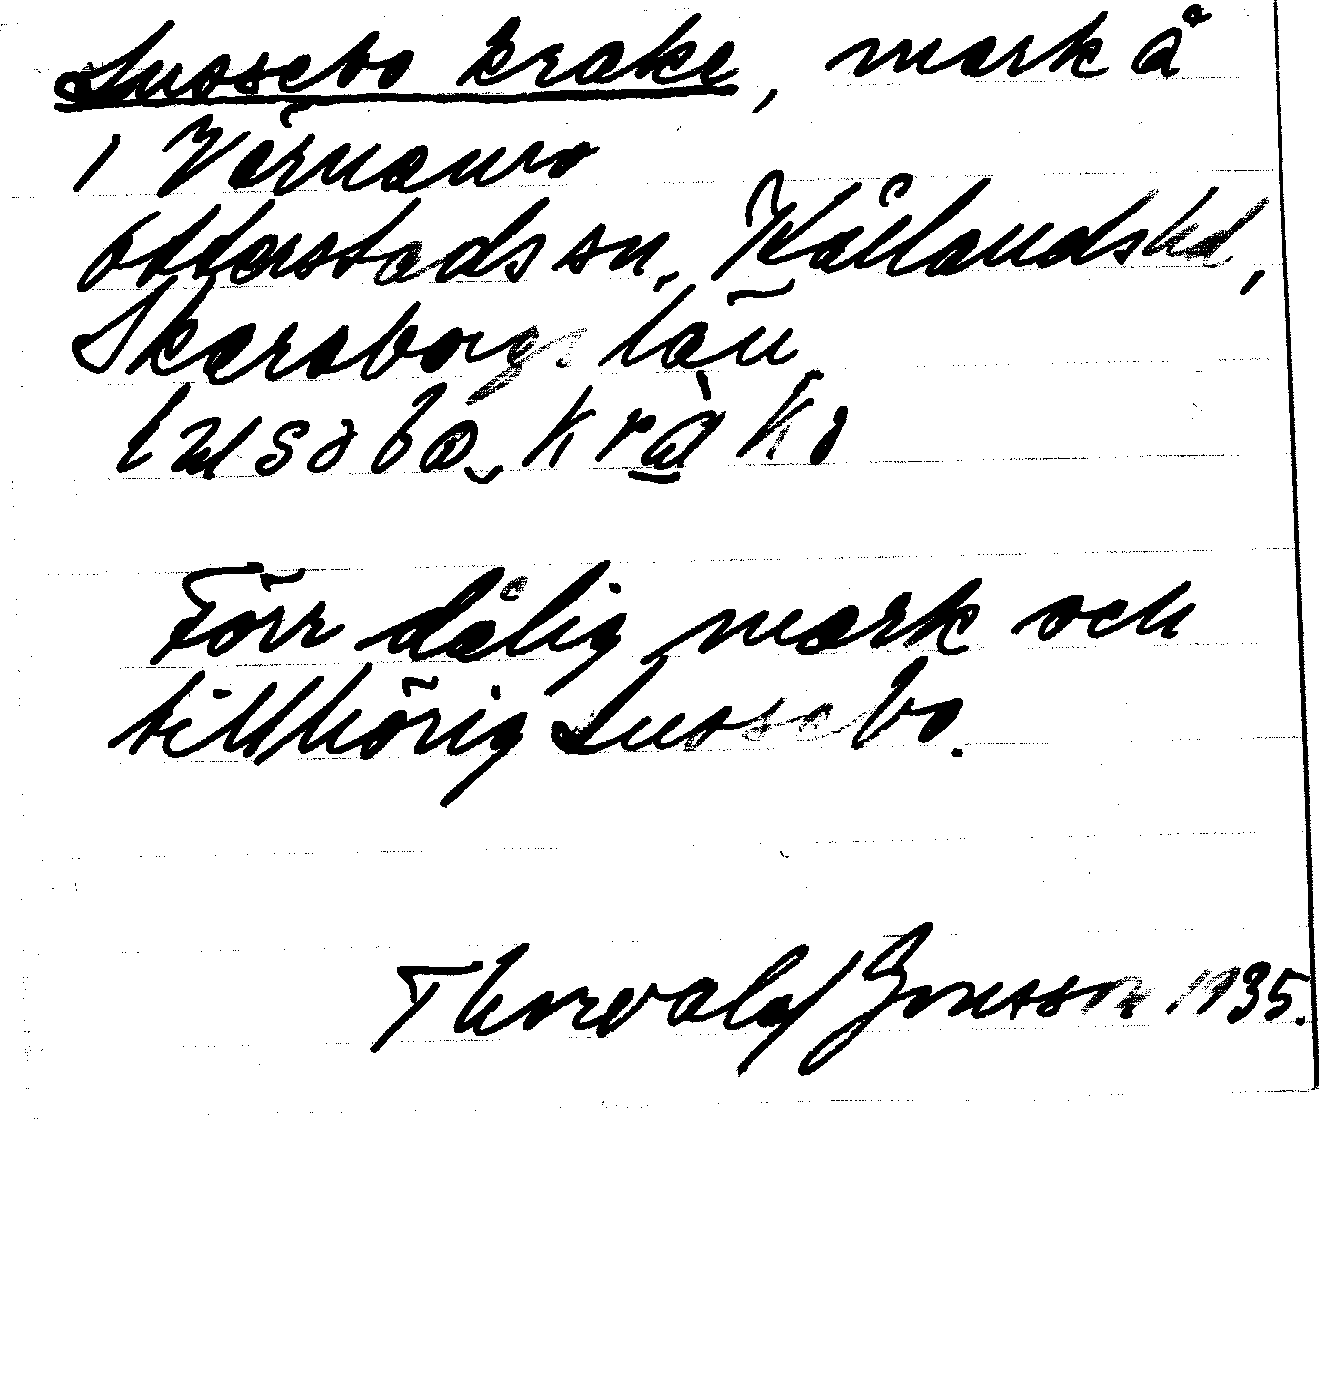 Lussebo krake, mark å
1 Värnamo
Otterstads sn. Kållands hd,
Skaraborgs län.
Förr dålig mark och
tillhörig Lussebo.
Thorvald Jonsson 1935.